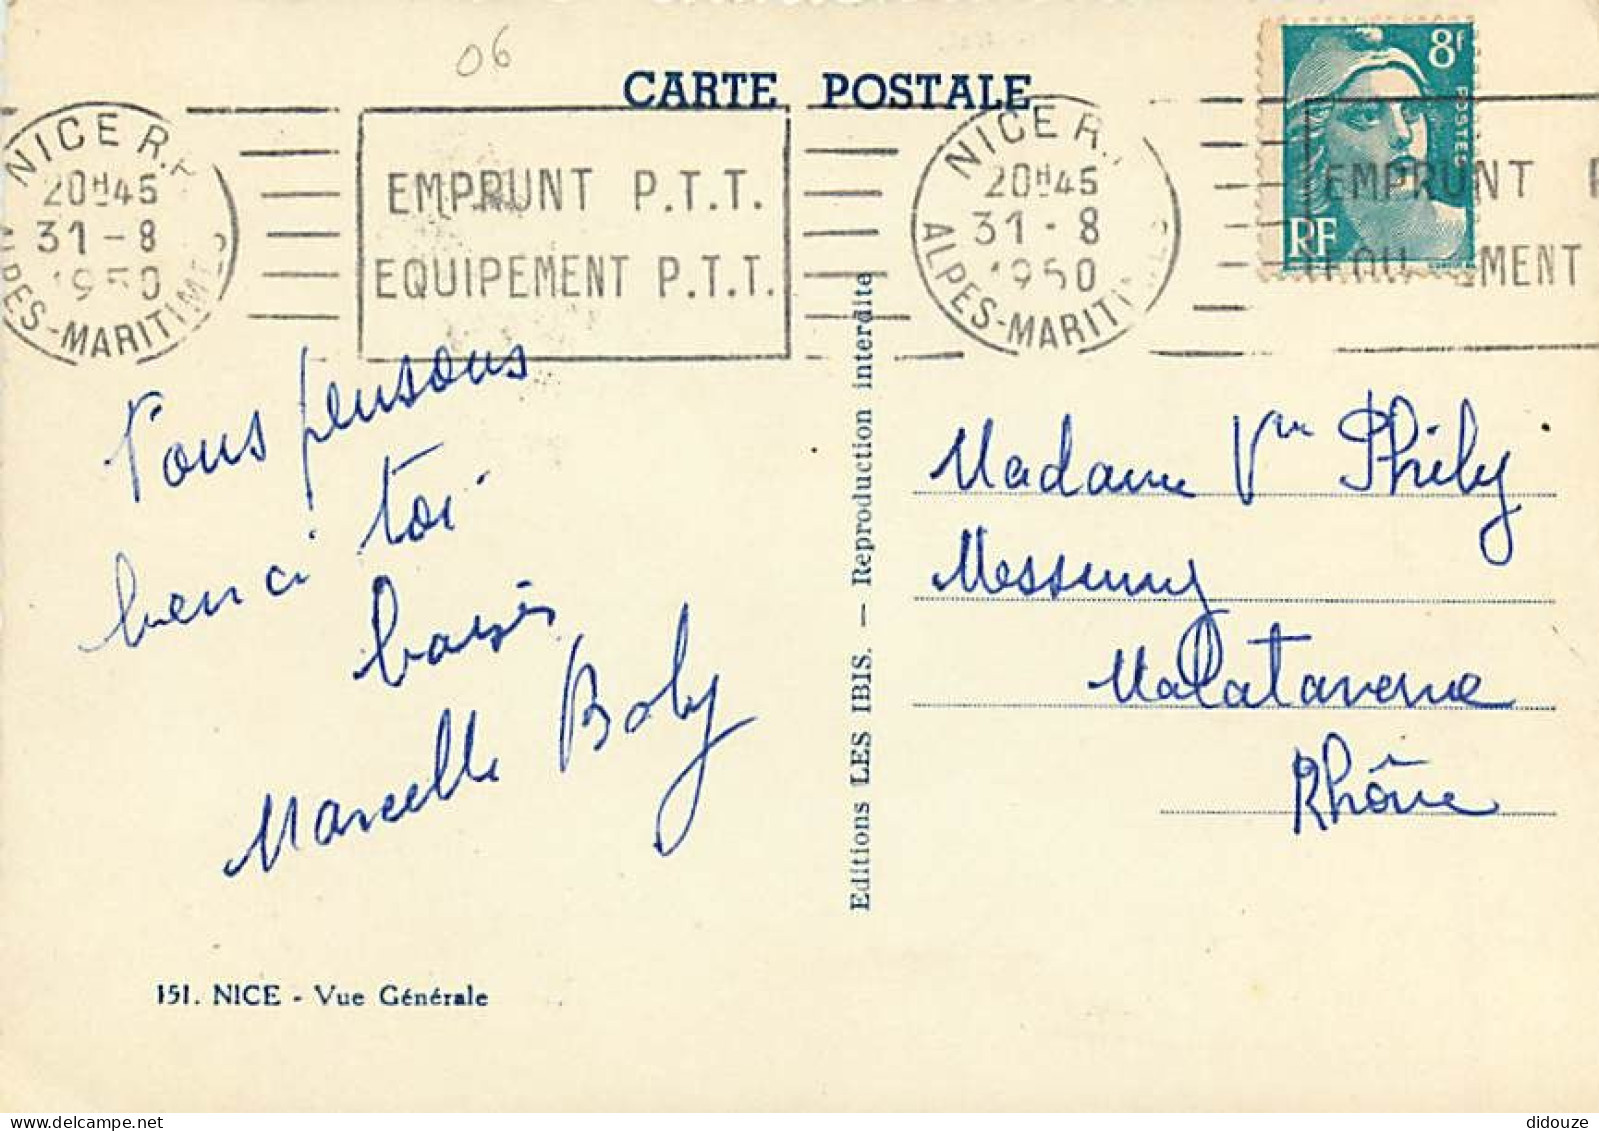 06
CARTE POSTALE
NICE R.P.
20H45
31-8
1950
ALPES-MARITIMES
EMPRUNT P.T.T.
EQUIPEMENT P.T.T.
NICE R.
20H45
31-8
1950
ALPES-MARITIMES
8f
POSTES
RF
EMPRUNT P
MENT
Nous pensons
bien à toi
baisers
Marcelle Boby
Editions LES IBIS. — Reproduction interdite
Madame Vve Philly
Messimy
Malataverne
Rhône
151. NICE - Vue Générale
didouze